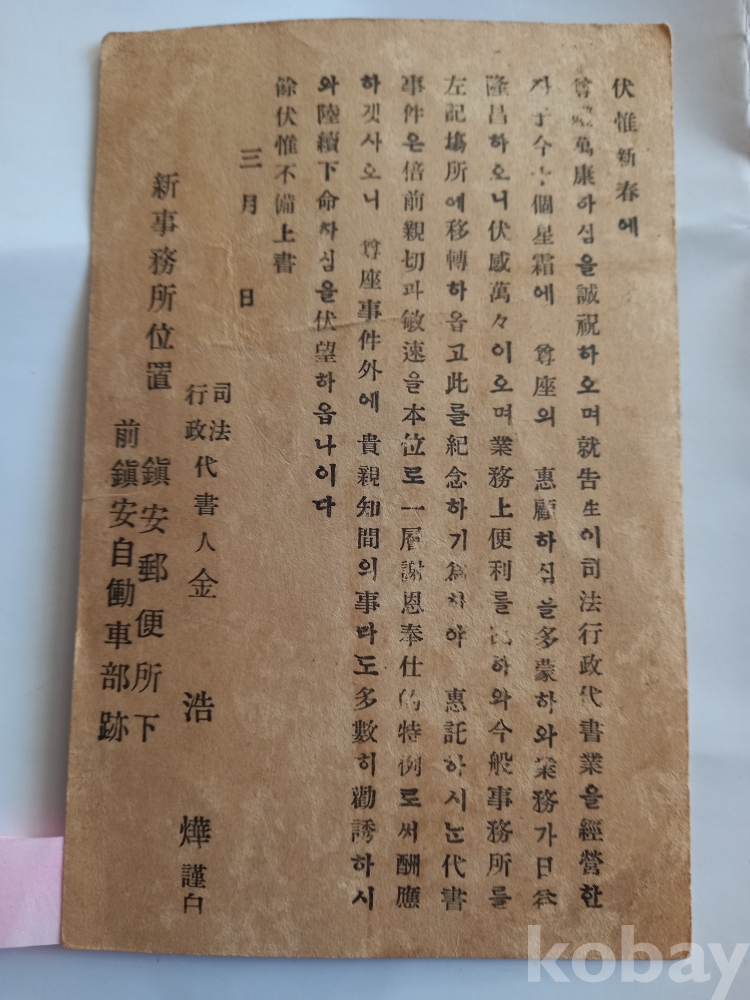 伏惟新春에
尊體萬康하심을誠祝하오며就告生이司法行政代書業을經營한
지于今 個星霜에 尊座의 惠顧하심을多蒙하와業務가日益
隆昌하오니伏感萬々이오며業務上便利를 하와今般事務所를
左記塲所에移轉하옵고此를紀念하기爲하야 惠託하시는代書
事件은倍前親切과敏速을本位로一層謝恩奉仕的特例로써酬應
하겟사오니 尊座事件外에 貴親知間의事라도多數히勸誘하시
와陸續下命하심을伏望하옵나이다
餘伏惟不備上書
三月 日
司法
行政
代書人金 浩 燁謹白
新事務所位置
鎭安郵便所下
前鎭安自働車部跡
kobay